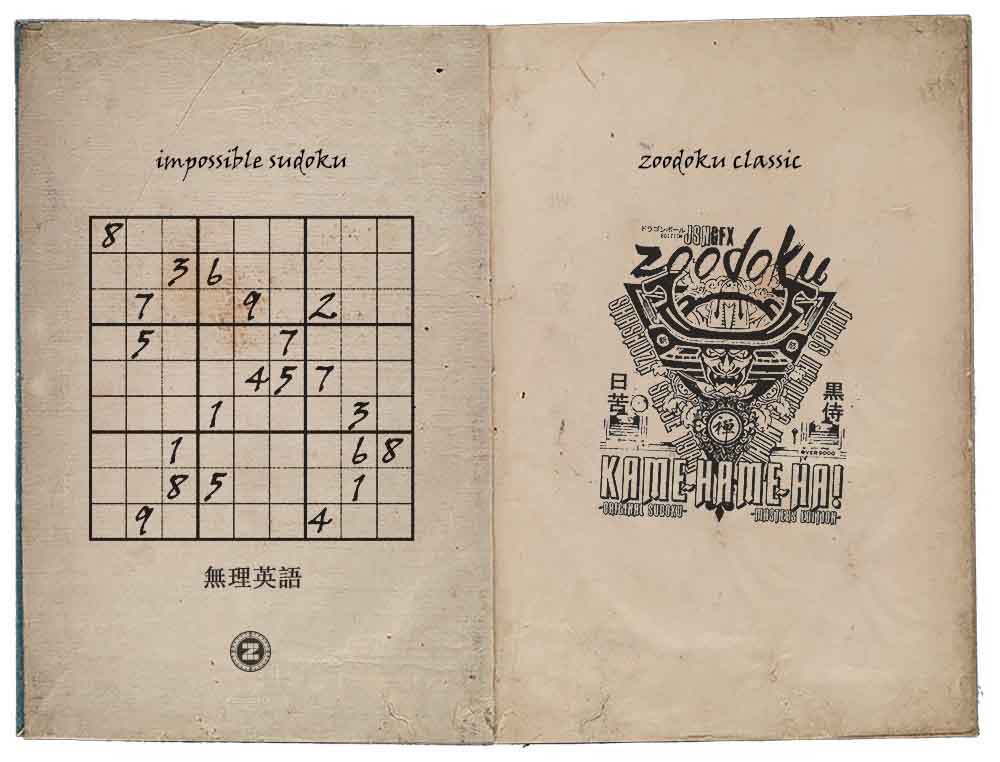 impossible sudoku
8
3 6
7 9 2
5 7
4 5 7
1 3
1 6 8
8 5 1
9 4
無理英語
Z
zoodoku classic
ドラゴンボール
EDITION
JSNGFX
zoodoku
日苦
黒侍
禅
OVER9000
KAME-HAME-HA!
-ORIGINAL SUDOKU-
-MASTERS EDITION-